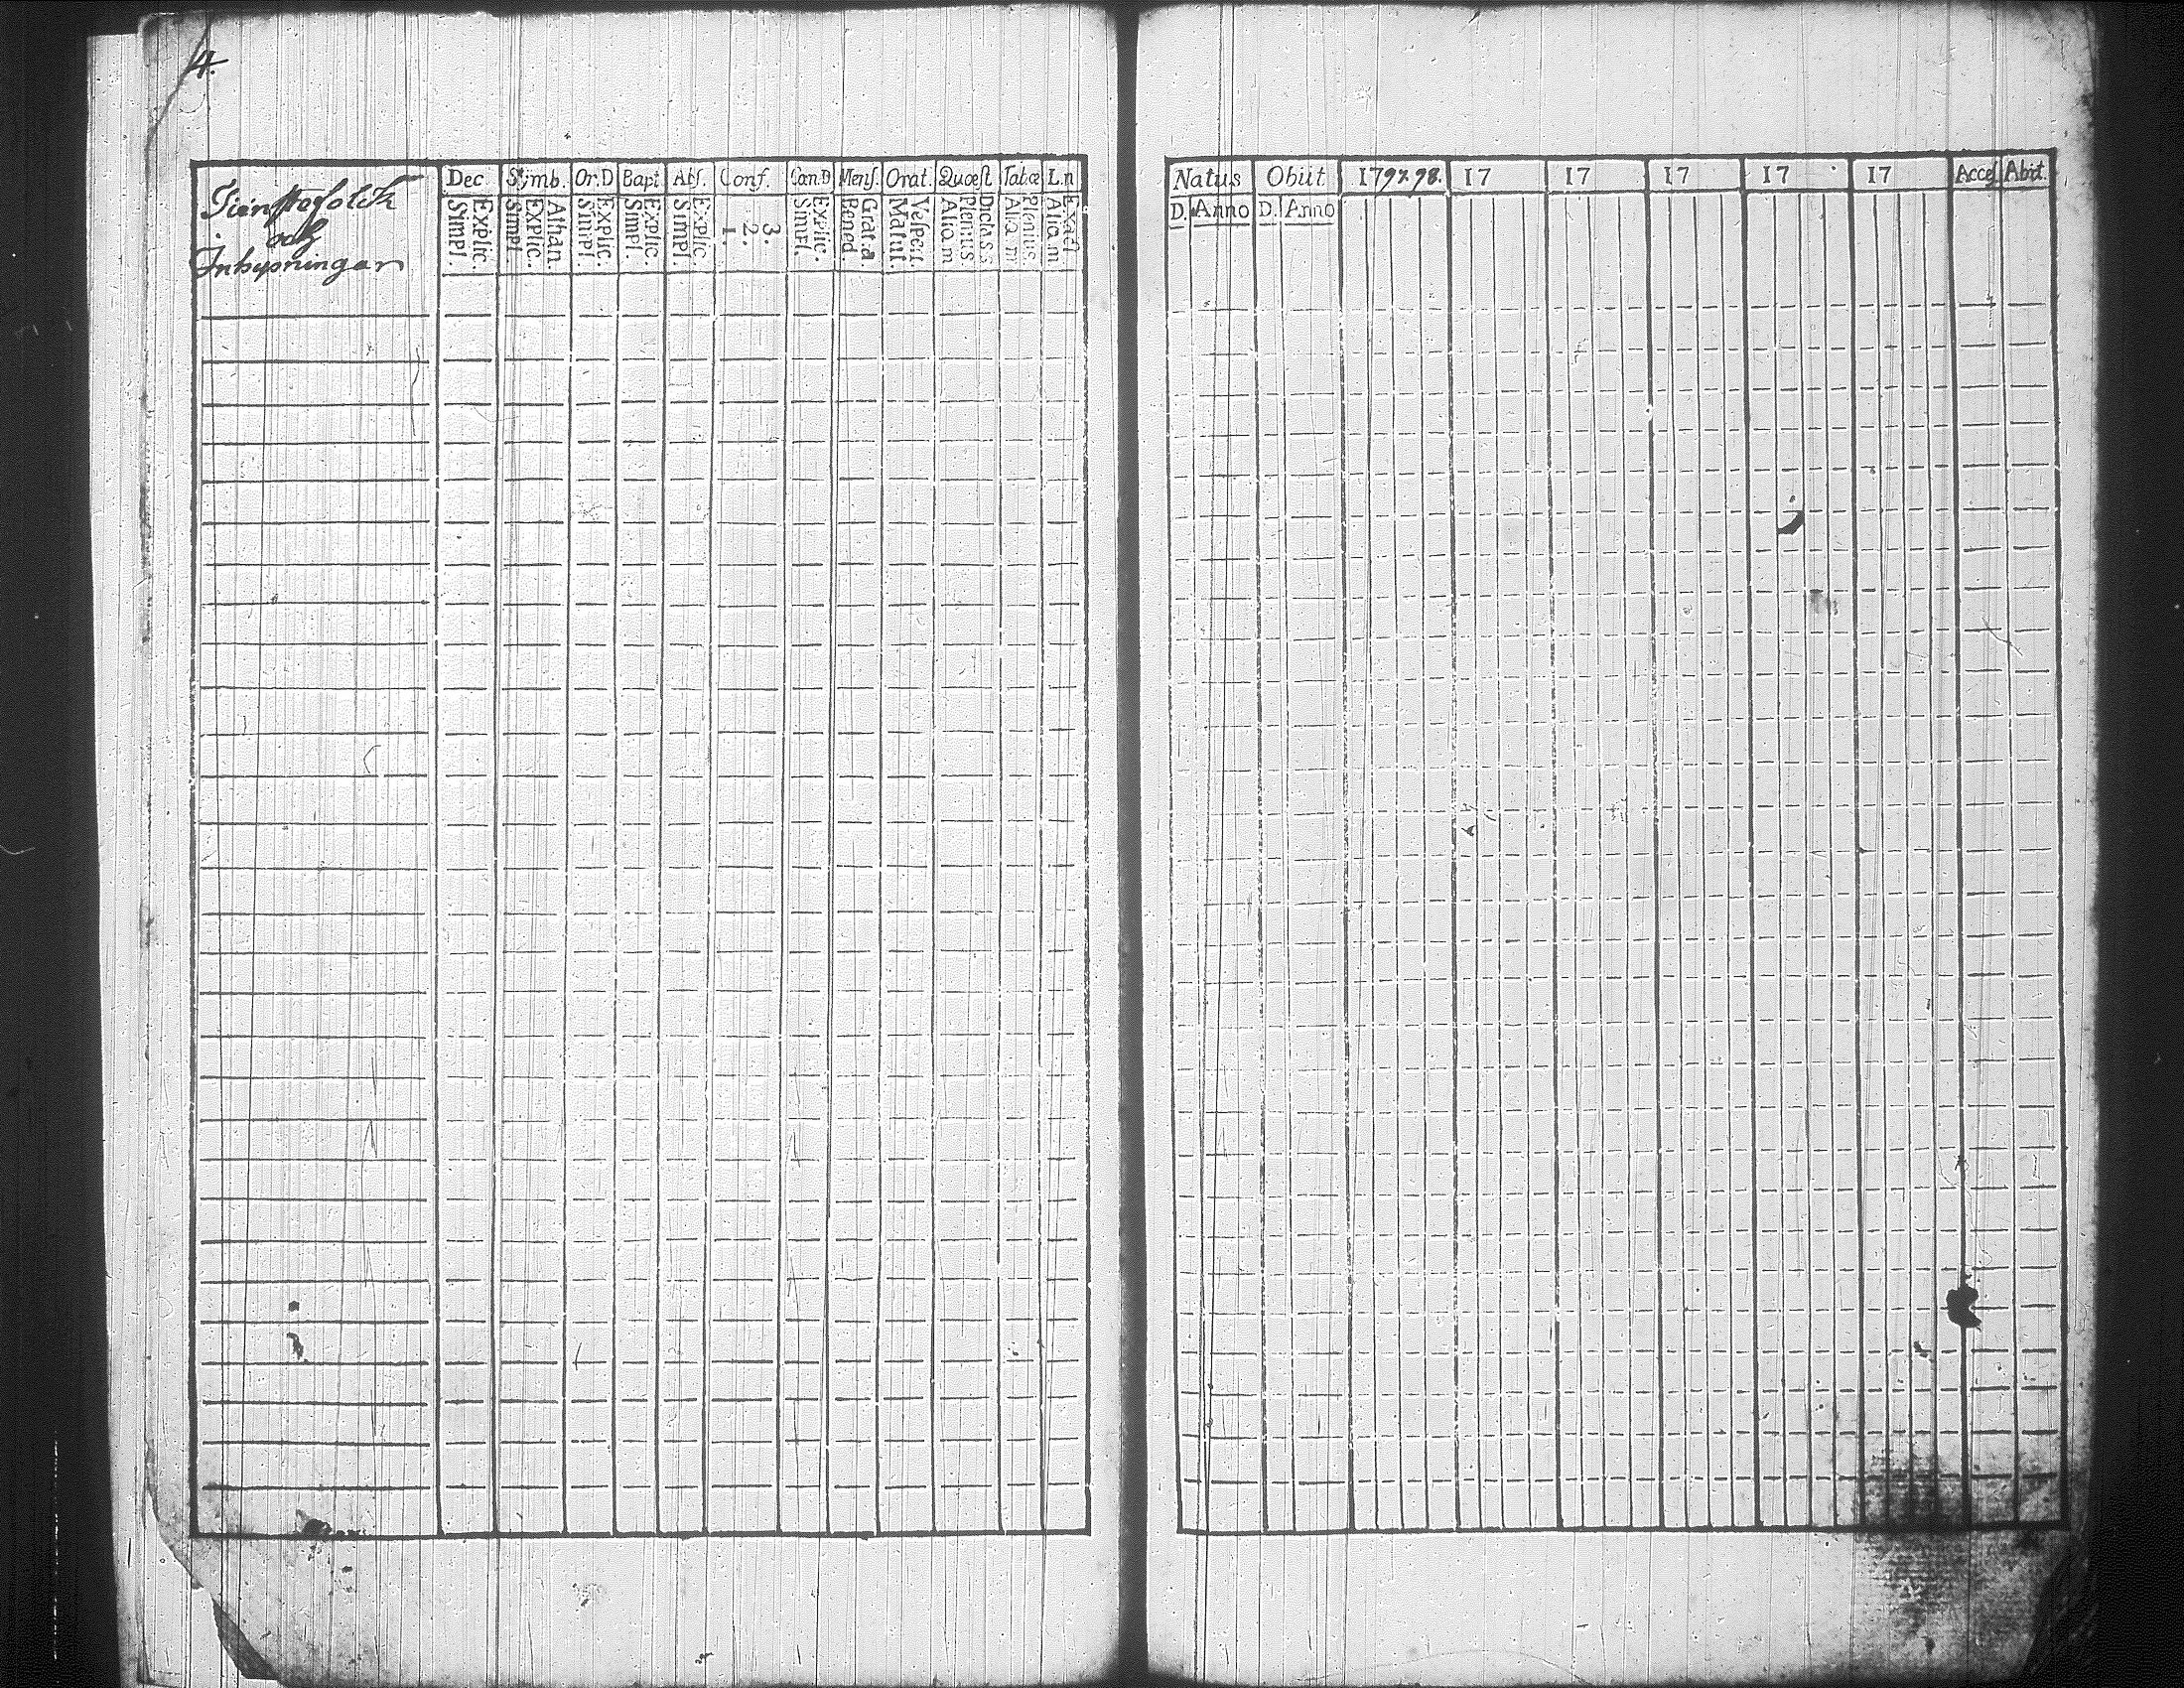 4.
Tienstefolck
och
Inhysningar
Dec Simb. Or.D Bapt Abs. Conf. Can.D Mens. Orat. Quæst Tabæ L.n
Simpl. Explic. Simpl. Explic. Athan. Simpl. Explic. Simpl. Explic. Simpl. Explic. 1. 2. 3. Simpl. Explic. Bened. Grat.a. Matut. Vespert. Aliq.m Plenius. Dicta s.s Aliq.m Plenius. Aliq.m Exact
Natus Obiit 1797.98. 17 17 17 17 17 Acces Abiit.
D. Anno D. Anno